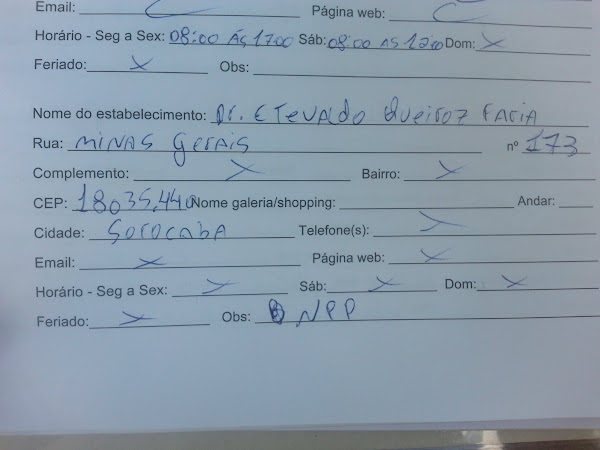 Email: Página web:
Horário - Seg a Sex: 08:00 ÀS 17:00 Sáb: 08:00 AS 12:00 Dom: X
Feriado: X Obs:
Nome do estabelecimento: Dr. ETEVALDO QUEIROZ FARIA
Rua: MINAS Gerais nº 173
Complemento: X Bairro: X
CEP: 18035.440 Nome galeria/shopping: Andar:
Cidade: SOROCABA Telefone(s): X
Email: X Página web: X
Horário - Seg a Sex: X Sáb: X Dom: X
Feriado: X Obs: NPP